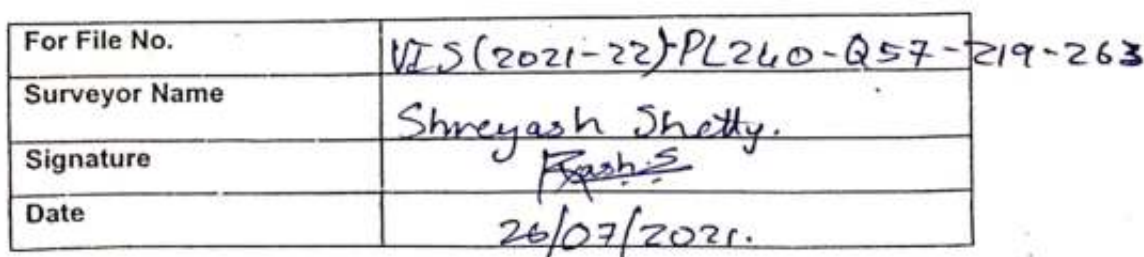 For File No. VIS(2021-22)-PL240-Q57-219-263
Surveyor Name Shreyash Shetty.
Signature
Date 26/07/2021.